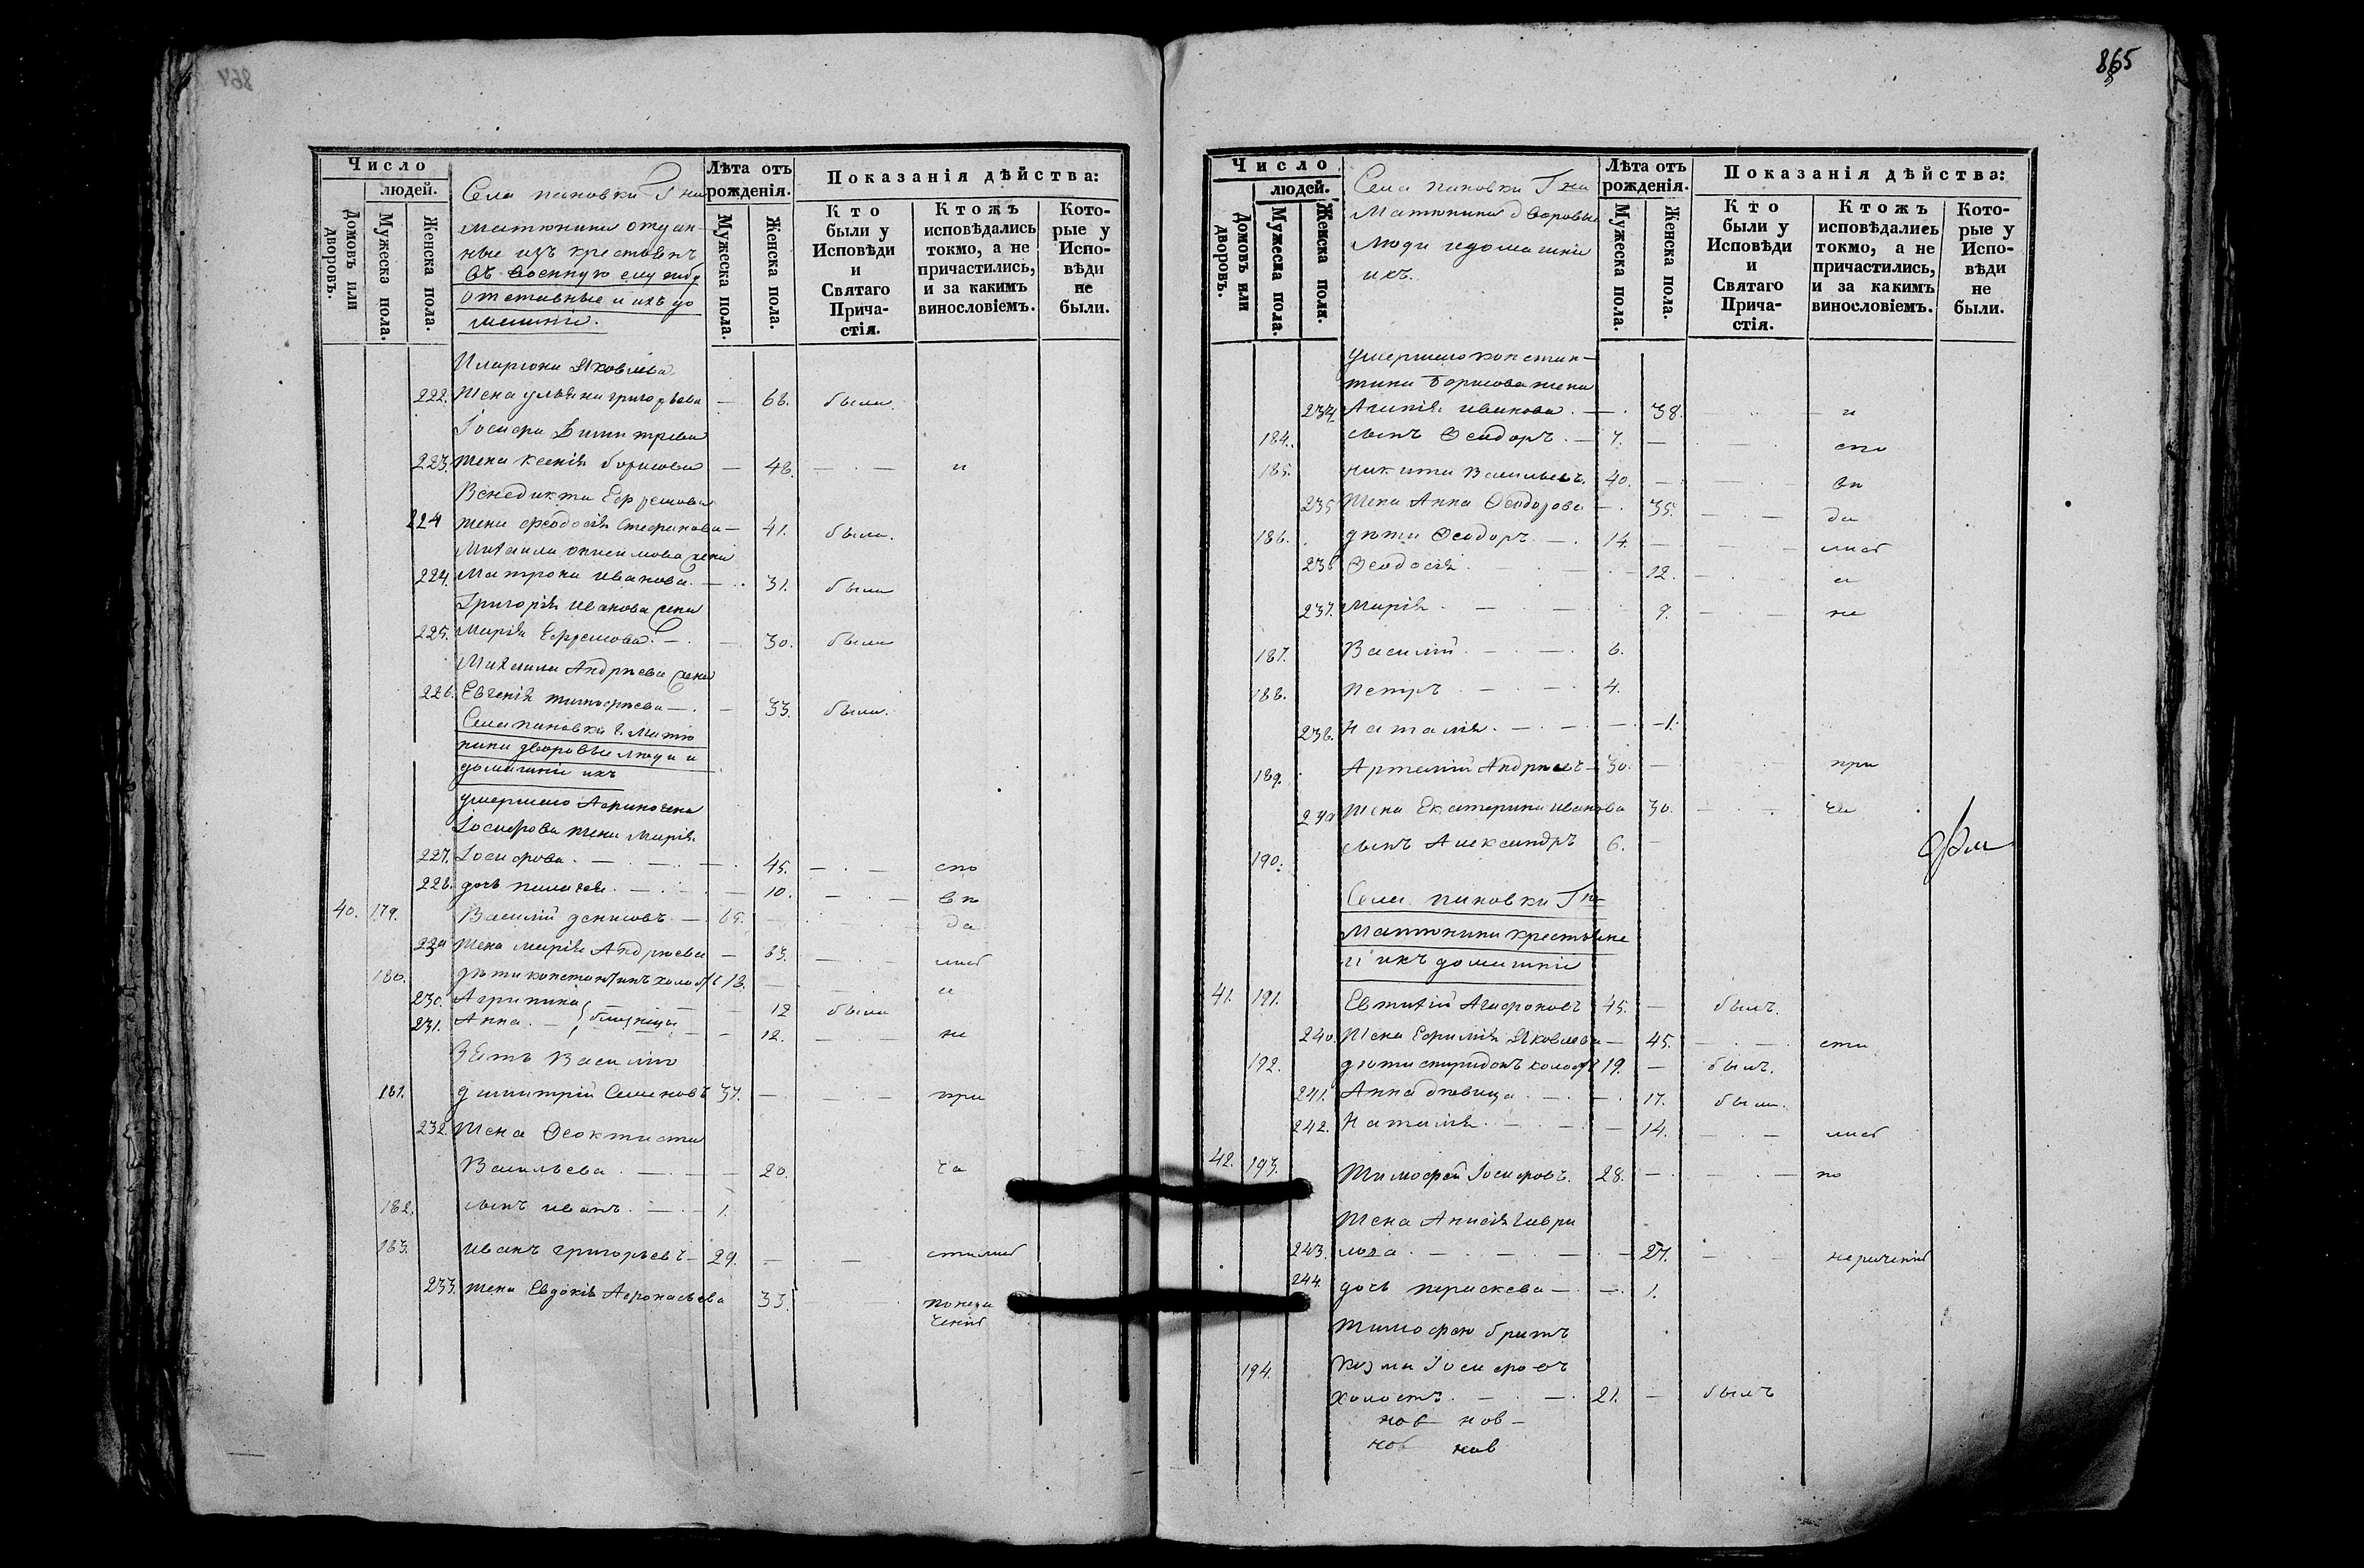 864
Число
людей.
Домовъ или дворовъ.
Мужеска пола.
Женска пола.
Села пановки Гна
матюнина отдан-
ные изъ крестьянъ
въ военную службу
отставные и ихъ до
машніе.
Лѣта отъ рожденія.
Мужеска пола.
Женска пола.
Показанія дѣйства:
Кто были у Исповѣди и Святаго Прича-стія.
Ктожъ исповѣдались токмо, а не причастились, и за какимъ винословіемъ.
Кото-рые у Испо-вѣди не были.
Иларіона Яковлева
222. жена ульяна григорьева — 68. была.
Іосифа Димитрева
223. жена ксенія борисова — 48. — — и
Венедикта Ефремова
224 жена феодосія Стефанова — 41. была.
Михаила онисимова жена
224. Матрона иванова. — 31. была
Григорія иванова жена
225. Марія Ефремова. — 30. была
Михаила Андрѣева жена
226. Евгенія тимофѣева — 33. была.
Села пановки г. Матю
нина дворовые люди и
домашніе ихъ
умершаго
Іосифова жена Марія
227. Іосифова. — 45. — — спо
228. дочь пелагея. — 10. — — вѣ
40. 179. Василій денисовъ. — 65. — да
229 жена марія Андрѣева — 63. — лис
180. дѣти константинъ холос 18. — и
230. Агрипина
231. Анна — близнецы — 12 была
12. — не
Зять Василію
181. димитрій Семеновъ 37. — — при
232. Жена Феоктиста
Васильева. — 20. ча
182. сынъ иванъ. — 1.
183. иванъ григорьевъ — 29. — — стилис
233. жена Евдокія Афонасьева 33. понера
ченію
865
Число
людей.
Домовъ или дворовъ.
Мужеска пола.
Женска пола.
Села пановки Гна
Матюнина дворовые
люди и домашніе
ихъ.
Лѣта отъ рожденія.
Мужеска пола.
Женска пола.
Показанія дѣйства:
Кто были у Исповѣди и Святаго Прича-стія.
Ктожъ исповѣдались токмо, а не причастились, и за какимъ винословіемъ.
Кото-рые у Испо-вѣди не были.
умершаго констан-
тина Борисова жена
234. Агипія иванова. — 38. и
184. сынъ Феодоръ. — 7. — спо
185. никита Васильевъ. 40. — вѣ
235 Жена Анна Феодорова — 35. да
186. дѣти Феодоръ. — 14. — лис
236 Феодосія — 12. и
237. Марія — 9. не
187. Василій. — 6.
188. Петръ. — 4.
238. Наталія. — 1.
189. Артемій Андрѣевъ — 30. — при
239 Жена Екатерина иванова 30. ча
190. сынъ Александръ 6. —
Села пановки Гна
Матюнина крестьяне
и ихъ домашніе
41. 191. Евтихій Агафоновъ 45. — былъ.
240. Жена Ефимія Яковлева — 45. — сти
192. дѣти спиридонъ холос 19. — былъ.
241. Анна дѣвица — 17. была.
242. Наталія. — 14. — лис
42. 193. Тимофей Іосифовъ. 28. — по
Жена Анисія гаври
243. лова. — 27. нераченію
244. дочь параскева — 1.
Тимофею братъ
194. козма Іосифовъ
холостъ. — 21. — былъ
нов нов —
нов нов